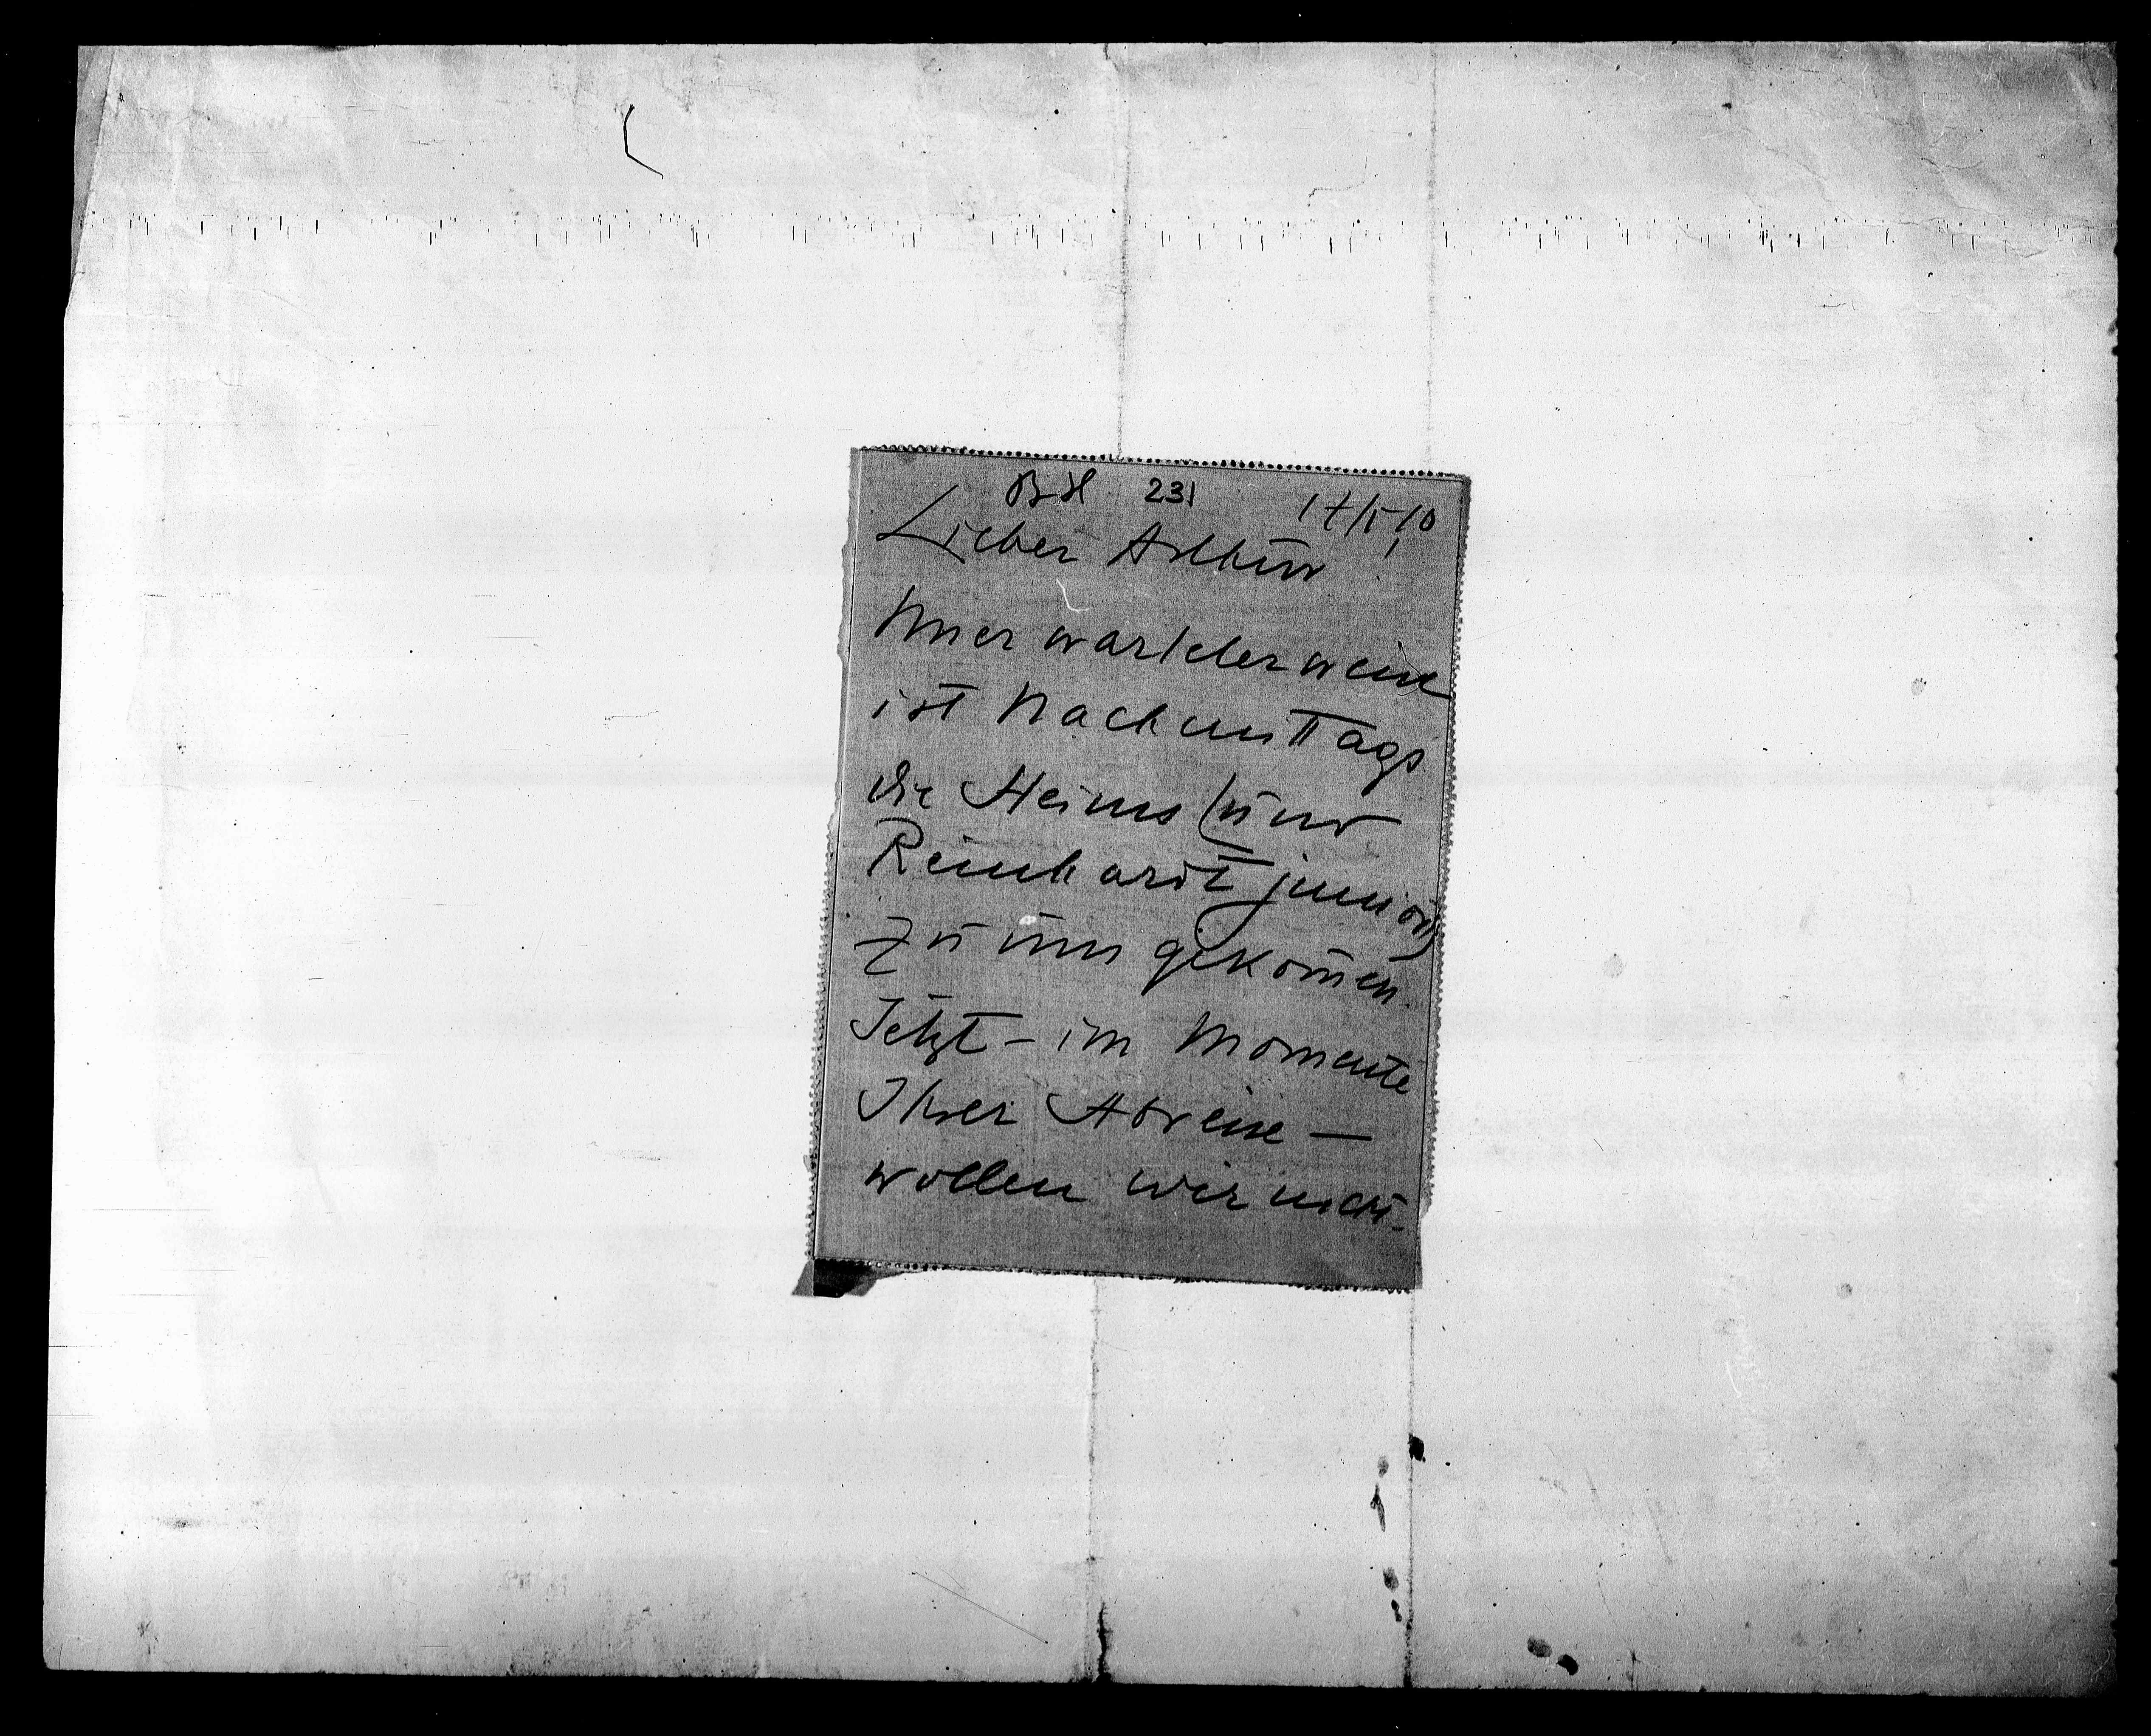 BH 231 17/5 10
Lieber Arthur!
Unerwarteterweise
ist Nachmittags
die Heims (und
Reinhardt junior)
zu uns gekom̄en.
Jetzt – im Momente
Ihrer Abreise –
wollen wir nicht